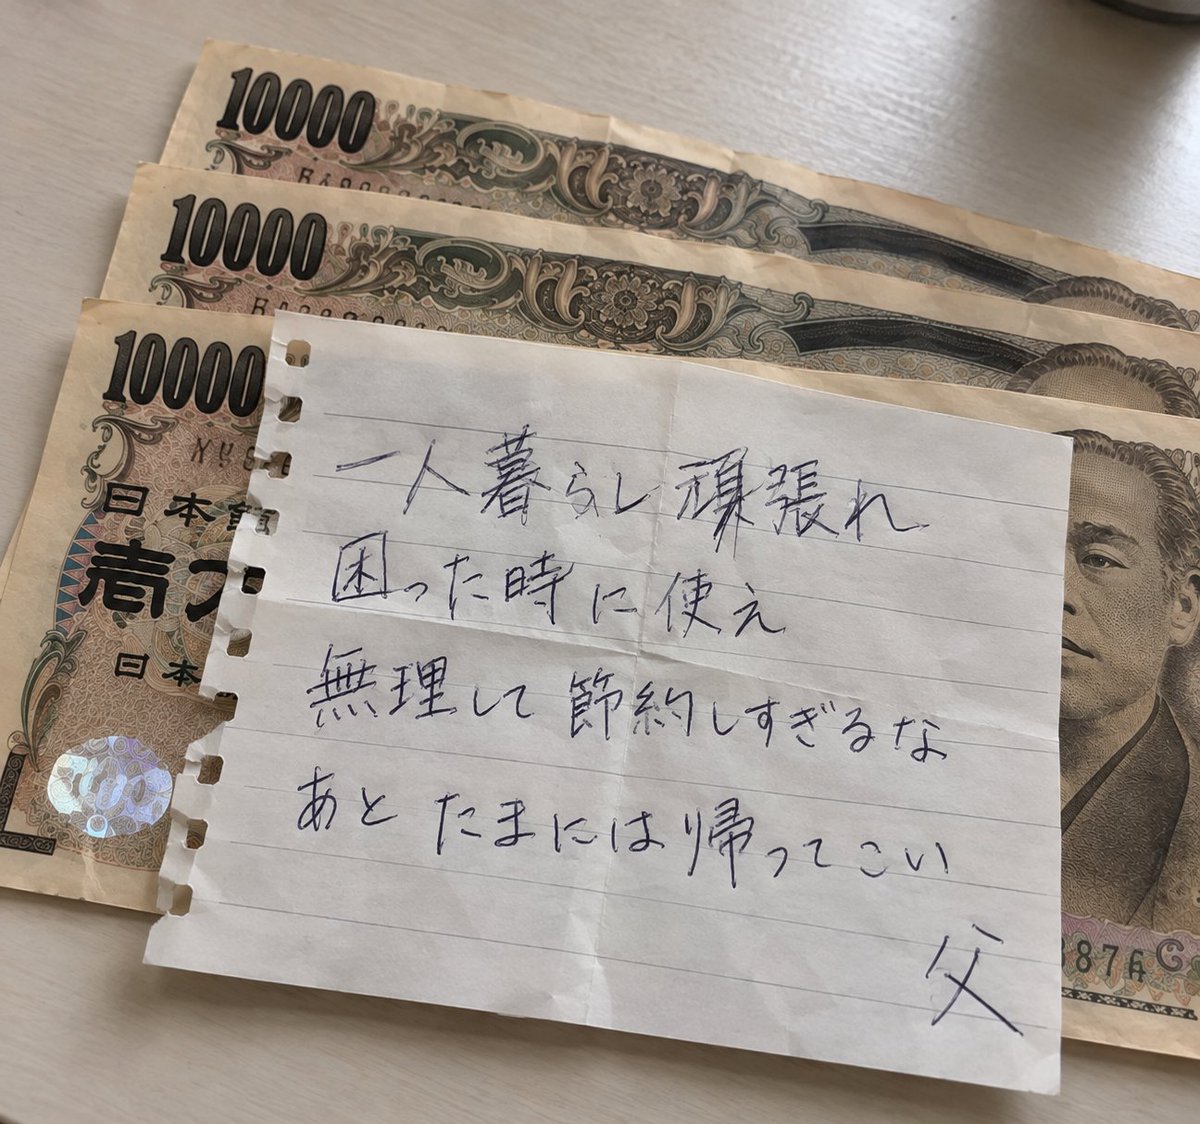 10000
10000
10000
日本銀
壱万
日本
一人暮らし頑張れ
困った時に使え
無理して節約しすぎるな
あと たまには帰ってこい
父